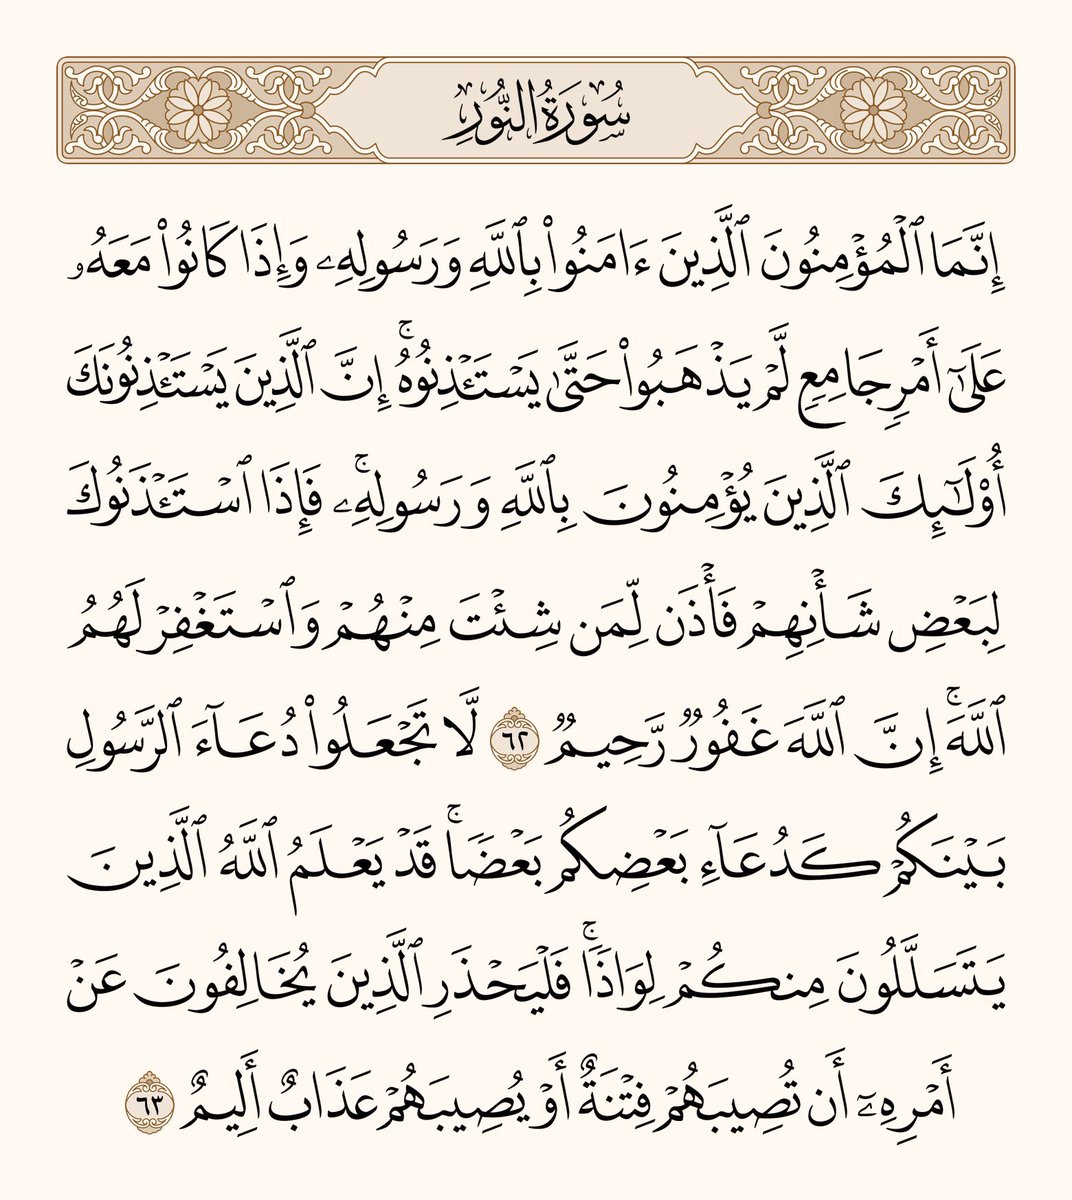 سُورَةُ النُّورِ
إِنَّمَا ٱلْمُؤْمِنُونَ ٱلَّذِينَ ءَامَنُوا۟ بِٱللَّهِ وَرَسُولِهِۦ وَإِذَا كَانُوا۟ مَعَهُۥ
عَلَىٰٓ أَمْرٍ جَامِعٍ لَّمْ يَذْهَبُوا۟ حَتَّىٰ يَسْتَـْٔذِنُوهُ ۚ إِنَّ ٱلَّذِينَ يَسْتَـْٔذِنُونَكَ
أُو۟لَـٰٓئِكَ ٱلَّذِينَ يُؤْمِنُونَ بِٱللَّهِ وَرَسُولِهِۦ ۚ فَإِذَا ٱسْتَـْٔذَنُوكَ
لِبَعْضِ شَأْنِهِمْ فَأْذَن لِّمَن شِئْتَ مِنْهُمْ وَٱسْتَغْفِرْ لَهُمُ
ٱللَّهَ ۚ إِنَّ ٱللَّهَ غَفُورٌ رَّحِيمٌ ٦٢ لَّا تَجْعَلُوا۟ دُعَآءَ ٱلرَّسُولِ
بَيْنَكُمْ كَدُعَآءِ بَعْضِكُم بَعْضًا ۚ قَدْ يَعْلَمُ ٱللَّهُ ٱلَّذِينَ
يَتَسَلَّلُونَ مِنكُمْ لِوَاذًا ۚ فَلْيَحْذَرِ ٱلَّذِينَ يُخَالِفُونَ عَنْ
أَمْرِهِۦٓ أَن تُصِيبَهُمْ فِتْنَةٌ أَوْ يُصِيبَهُمْ عَذَابٌ أَلِيمٌ ٦٣